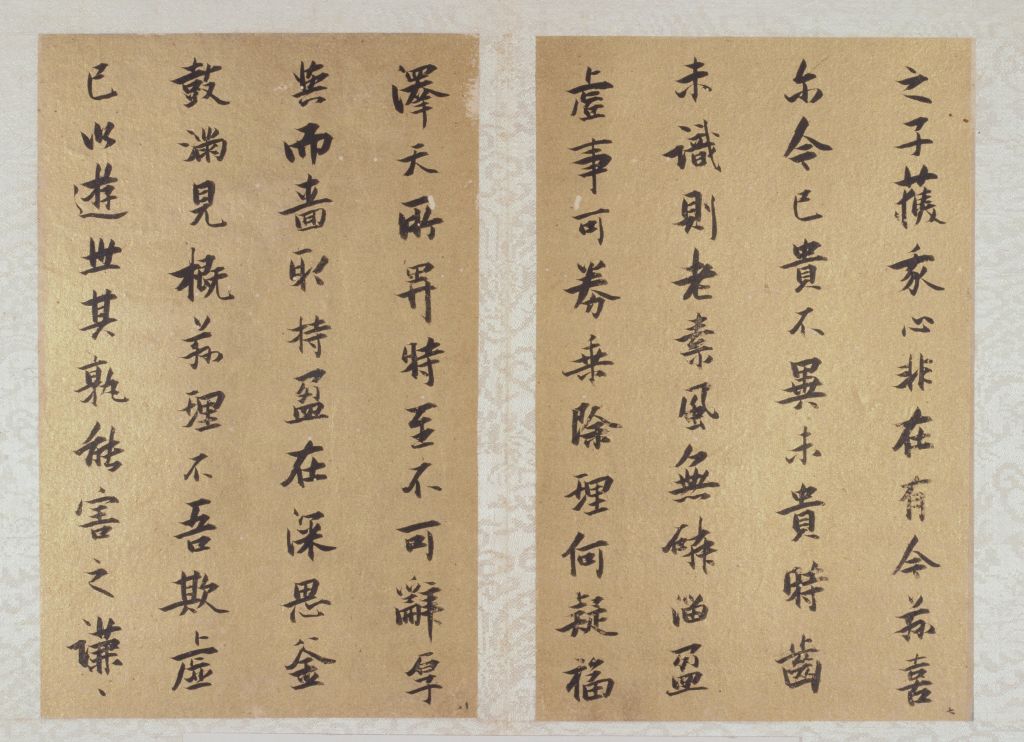 之子獲我心非在有今茲喜
尔今已貴不異未貴時齒
未識則老素風無磷淄盈
虛事可券乘除理何疑福
七
澤天所畀時至不可辭厚
與而嗇取持盈在深思釜
鼓滿見概茲理不吾欺虛
己以遊世其孰能害之謙〻
八